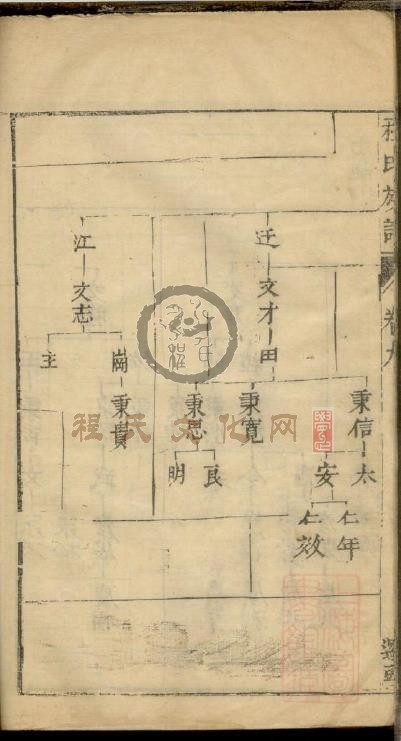 程氏族譜
卷九
迁
文才
田
秉信
太
安
仁年
仁效
秉寬
秉思
良
明
江
文志
崗
秉貴
主
程氏文化网